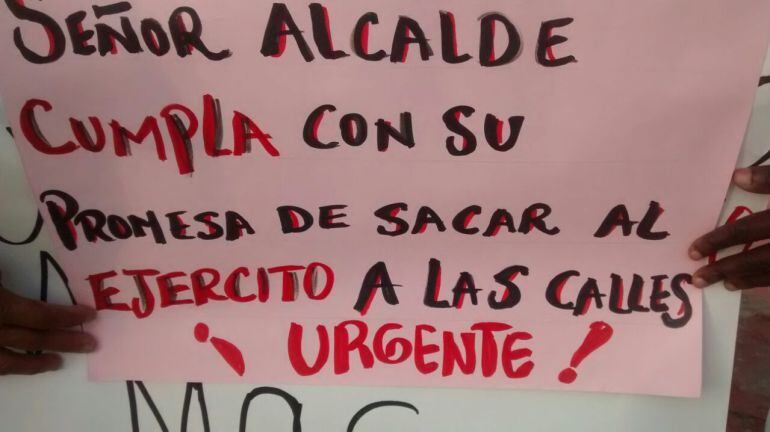 SEÑOR ALCALDE
CUMPLA CON SU
PROMESA DE SACAR AL
EJERCITO A LAS CALLES
¡URGENTE!